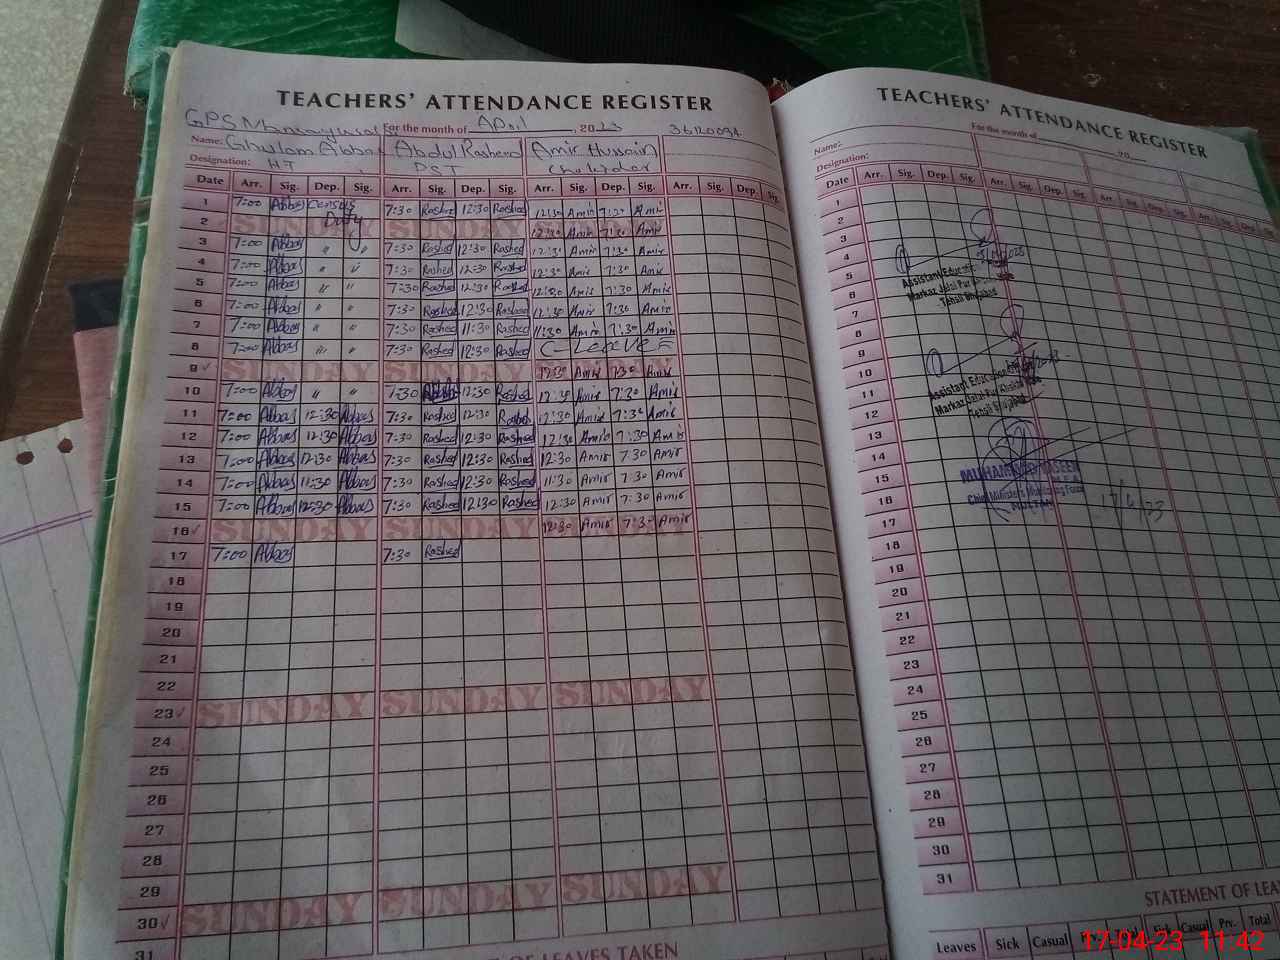 TEACHERS' ATTENDANCE REGISTER
For the month of April, 2023 36120094
Name: Ghulam Abbas Abdul Rasheed Amir Hussain
Designation: HT PST
Date Arr. Sig. Dep. Sig. Arr. Sig. Dep. Sig. Arr. Sig. Dep. Sig. Arr. Sig. Dep. Sig.
1 7:00 Abbas Census 7:30 Rashed 12:30 Rashed 12:30 Amir 7:30 Amir
2 SUNDAY Duty SUNDAY 12:30 Amir 7:30 Amir
3 7:00 Abbas " " 7:30 Rashed 12:30 Rashed 12:30 Amir 7:30 Amir
4 7:00 Abbas " " 7:30 Rashed 12:30 Rashed 12:30 Amir 7:30 Amir
5 7:00 Abbas " " 7:30 Rashed 12:30 Rashed 12:30 Amir 7:30 Amir
6 7:00 Abbas " " 7:30 Rashed 12:30 Rashed 11:30 Amir 7:30 Amir
7 7:00 Abbas " " 7:30 Rashed 11:30 Rashed 11:30 Amir 7:30 Amir
8 7:00 Abbas " " 7:30 Rashed 12:30 Rashed C-Leave
9 ✓ SUNDAY SUNDAY 12:30 Amir 7:30 Amir
10 7:00 Abbas " " 7:30 12:30 Rashed 12:30 Amir 7:30 Amir
11 7:00 Abbas 12:30 Abbas 7:30 Rashed 12:30 Rashed 12:30 Amir 7:30 Amir
12 7:00 Abbas 12:30 Abbas 7:30 Rashed 12:30 Rashed 12:30 Amir 7:30 Amir
13 7:00 Abbas 12:30 Abbas 7:30 Rashed 12:30 Rashed 12:30 Amir 7:30 Amir
14 7:00 Abbas 11:30 Abbas 7:30 Rashed 11:30 Rashed 11:30 Amir 7:30 Amir
15 7:00 Abbas 12:30 Abbas 7:30 Rashed 12:30 Rashed 12:30 Amir 7:30 Amir
16 ✓ SUNDAY SUNDAY SUNDAY 12:30 Amir 7:30 Amir
17 7:00 Abbas 7:30 Rashed
18
19
20
21
22
23 ✓ SUNDAY SUNDAY SUNDAY
24
25
26
27
28
29
30 ✓ SUNDAY SUNDAY SUNDAY
31
OF LEAVES TAKEN
TEACHERS' ATTENDANCE REGISTER
For the month of 20
Name:
Designation:
Date Arr. Sig. Dep. Sig. Arr. Sig. Dep. Sig. Arr. Sig. Dep. Sig. Arr. Sig. Dep.
1
2
3
4
5
6
7
8
9
10
11
12
13
14
15
16
17
18
19
20
21
22
23
24
25
26
27
28
29
30
31
Assistant Educ
Markaz Jalal Pur
Tehsil
Assistant Education
Markaz Jalal Pur
Tehsil
MUHAMMAD NASEEM
Chief Ministers Monitoring Force
MULTAN
17/4/23
STATEMENT OF LEA
Leaves Sick Casual Prv. Total Sick Casual Prv. Total
17-04-23 11:42